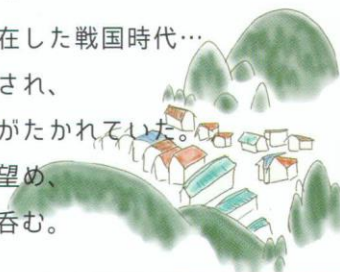 在した戦国時代…
され、
がたかれていた。
望め、
呑む。